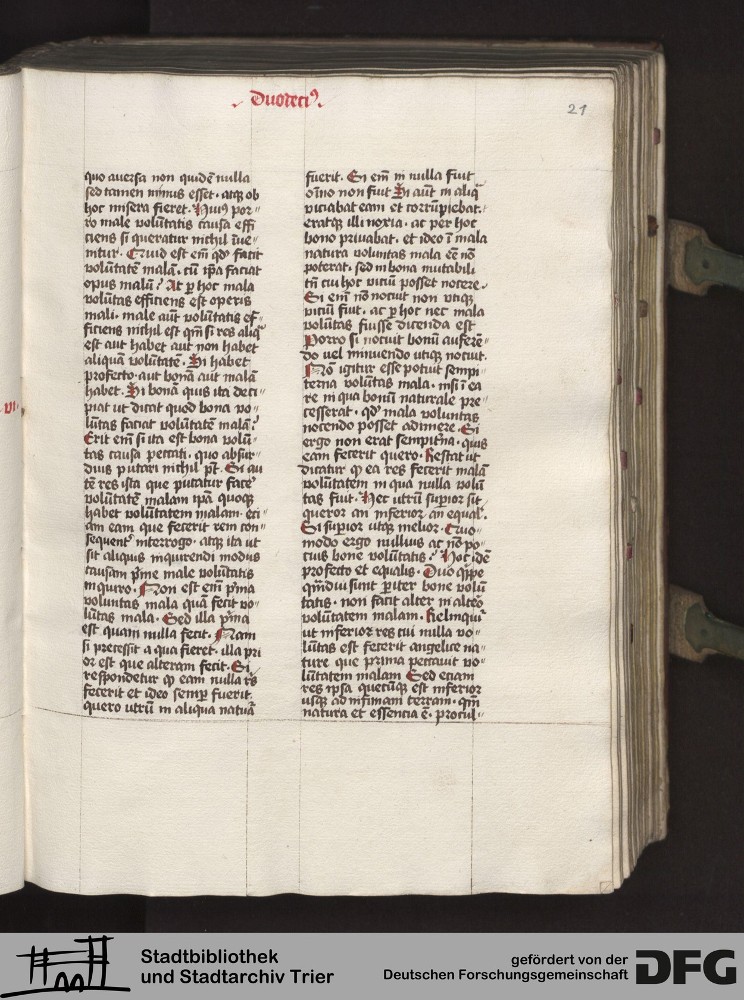 duodecimꝰ
21
quo auersa non quidē nulla
sed tamen minus esset · atqꝫ ob
hoc misera fieret. Huiꝰ por-
ro male volūtatis causa effi
ciens si queratur nichil īue-
nitur. Quid est em̄ qd̓ facit
volūtatē malā · cū ip̄a faciat
opus malū? Ac ꝑ hoc mala
volūtas efficiens est operis
mali · male aūt volūtatis ef-
ficiens nichil est qm̄ si res aliq̄
est aut habet aut non habet
aliquā volūtatē. Si habet
profecto aut bonā aut malā
habet. Si bonā quis ita deci-
piat ut dicat quod bona vo-
lūtas faciat volūtatē malā?
Erit em̄ si ita est bona volū-
tas causa peccati · quo absur-
dius putari nichil pt̄. Si au
tē res ista que putatur facē
volūtatē malam ip̄a quoqꝫ
habet volūtatem malam · eci-
am eam que fecerit rem con-
sequent̓ interrogo · atqꝫ ita ut
sit aliquis inquirendi modus
causam p̓me male volūtatis
inquiro. Non est em̄ p̓ma
voluntas mala quā fecit vo-
lūtas mala. Sed illa p̓ma
est quam nulla fecit. Nam
si precessit a qua fieret · illa pri
or est que alteram fecit. Si
respondetur ꝙ eam nulla rēs
fecerit et ideo semꝑ fuerit.
quero utrū in aliqua natuā
vi.
fuerit. Si em̄ in nulla fuit
oīno non fuit Si aūt in aliq̄
viciabat eam et corrūpiebat.
eratqꝫ illi noxia · ac per hoc
bono priuabat · et ideo ī mala
natura voluntas mala eē nō
poterat · sed in bona mutabili
tn̄ cui hoc viciū posset nocere.
Si em̄ nō nocuit non utiqꝫ
viciū fuit · ac ꝑ hoc nec mala
volūtas fuisse dicenda est
Porro si nocuit bonū auferē-
do vel minuendo utiqꝫ nocuit.
Nō igitur esse potuit sempi-
terna voluntas mala · in si ī ea
re in qua bonū naturale pre-
cesserat · qd̓ mala voluntas
nocendo posset adimere. Si
ergo non erat sempit̓na · quis
eam fecerit quero. Restat ut
dicatur ꝙ ea res fecerit malā
voluntatem in qua nulla volū
tas fuit. Hec utrū supior sit
queror an inferior an equal̓.
Si supior utiqꝫ melior. Quo-
modo ergo nullius ac nō po-
cius bone voluntatis? Hoc idē
profecto et equalis. Duo q̓ppe
qm̄diu sunt ꝑiter bone volū
tatis · non facit alter in alt̓o
voluntatem malam. Relinquit̓
ut inferior res cui nulla vo-
lūtas est fecerit angelice na-
ture que prima peccauit vo-
lūtatem malam Sed eciam
res ip̄sa quecūqꝫ est inferior
usqꝫ ad infimam terram · qm̄
natura et essencia ē · procul-
Stadtbibliothek
und Stadtarchiv Trier
gefördert von der
Deutschen Forschungsgemeinschaft
DFG